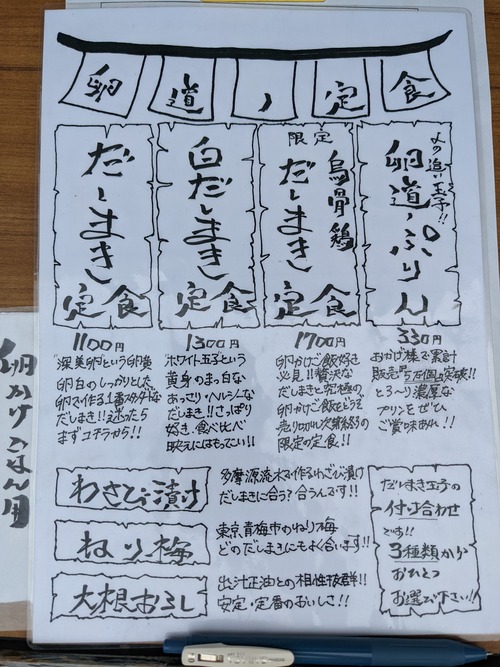 卵道ノ定食
〆の追い玉子!!
卵道ノぷりん
330円
おかげ様で累計
販売5万個突破!!
とろ〜り濃厚な
プリンをぜひ
ご賞味あれ!!
限定
烏骨鶏
だしまき
定食
1700円
卵かけご飯好き
必見!!贅沢な
だしまきと究極の
卵かけご飯をどうぞ
売り切れ次第終うの
限定の定食!!
白だしまき
定食
1300円
"ホワイト玉子"という
黄身のまっ白な
あっさり・ヘルシーな
だしまき!!さっぱり
好き・食べ比べ
映えにはもってこい!!
だしまき
定食
1100円
"深美卵"という卵黄
卵白のしっかりとした
卵で作る1番スタンダードな
だしまき!!迷ったら
まずコチラから!!
わさび漬け
多摩源流水で作るわさび漬け
だしまきに合う?合うんです!!
ねり梅
東京青梅市のねり梅
どのだしまきにもよく合います!!
大根おろし
出汁正油との相性抜群!!
安定・定番のおいしさ!!
だしまき玉子の
付け合わせ
です!!
3種類から
おひとつ
お選び下さい!!
卵かけごはん用